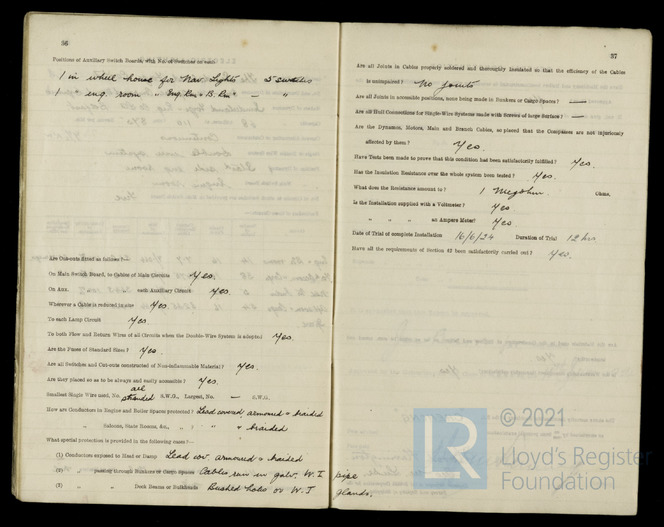 56
Positions of Auxiliary Switch Boards, with No. of Switches on each
1 in wheel house for Nav. Lights 5 switches
1 " eng. room " Eng. Rm & B. Rm " — "
Are Cut-outs fitted as follows?—
On Main Switch Board, to Cables of Main Circuits Yes.
On Aux. " each Auxiliary Circuit Yes.
Wherever a Cable is reduced in size Yes.
To each Lamp Circuit Yes.
To both Flow and Return Wires of all Circuits when the Double-Wire System is adopted Yes.
Are the Fuses of Standard Sizes? Yes.
Are all Switches and Cut-outs constructed of Non-inflammable Material? Yes.
Are they placed so as to be always and easily accessible? Yes.
Smallest Single Wire used, No. all stranded S.W.G., Largest, No. — S.W.G.
How are Conductors in Engine and Boiler Spaces protected? Lead covered, armoured & braided
" Saloons, State Rooms, &c., " ? " " & braided
What special protection is provided in the following cases?—
(1) Conductors exposed to Heat or Damp Lead cov. armoured & braided
(2) " passing through Bunkers or Cargo Spaces Cables run in galv. W. I. pipe
(3) " " Deck Beams or Bulkheads Bushed holes or W. T. glands.
57
Are all Joints in Cables properly soldered and thoroughly insulated so that the efficiency of the Cables
is unimpaired? No joints
Are all Joints in accessible positions, none being made in Bunkers or Cargo Spaces? —
Are all Hull Connections for Single-Wire Systems made with Screws of large Surface? —
Are the Dynamos, Motors, Main and Branch Cables, so placed that the Compasses are not injuriously
affected by them? Yes.
Have Tests been made to prove that this condition has been satisfactorily fulfilled? Yes.
Has the Insulation Resistance over the whole system been tested? Yes.
What does the Resistance amount to? 1 Megohm Ohms.
Is the Installation supplied with a Voltmeter? Yes
" " " an Ampere Meter? Yes
Date of Trial of complete Installation 16/6/24 Duration of Trial 12 hrs
Have all the requirements of Section 42 been satisfactorily carried out? Yes.
© 2021
LR
Lloyd's Register
Foundation